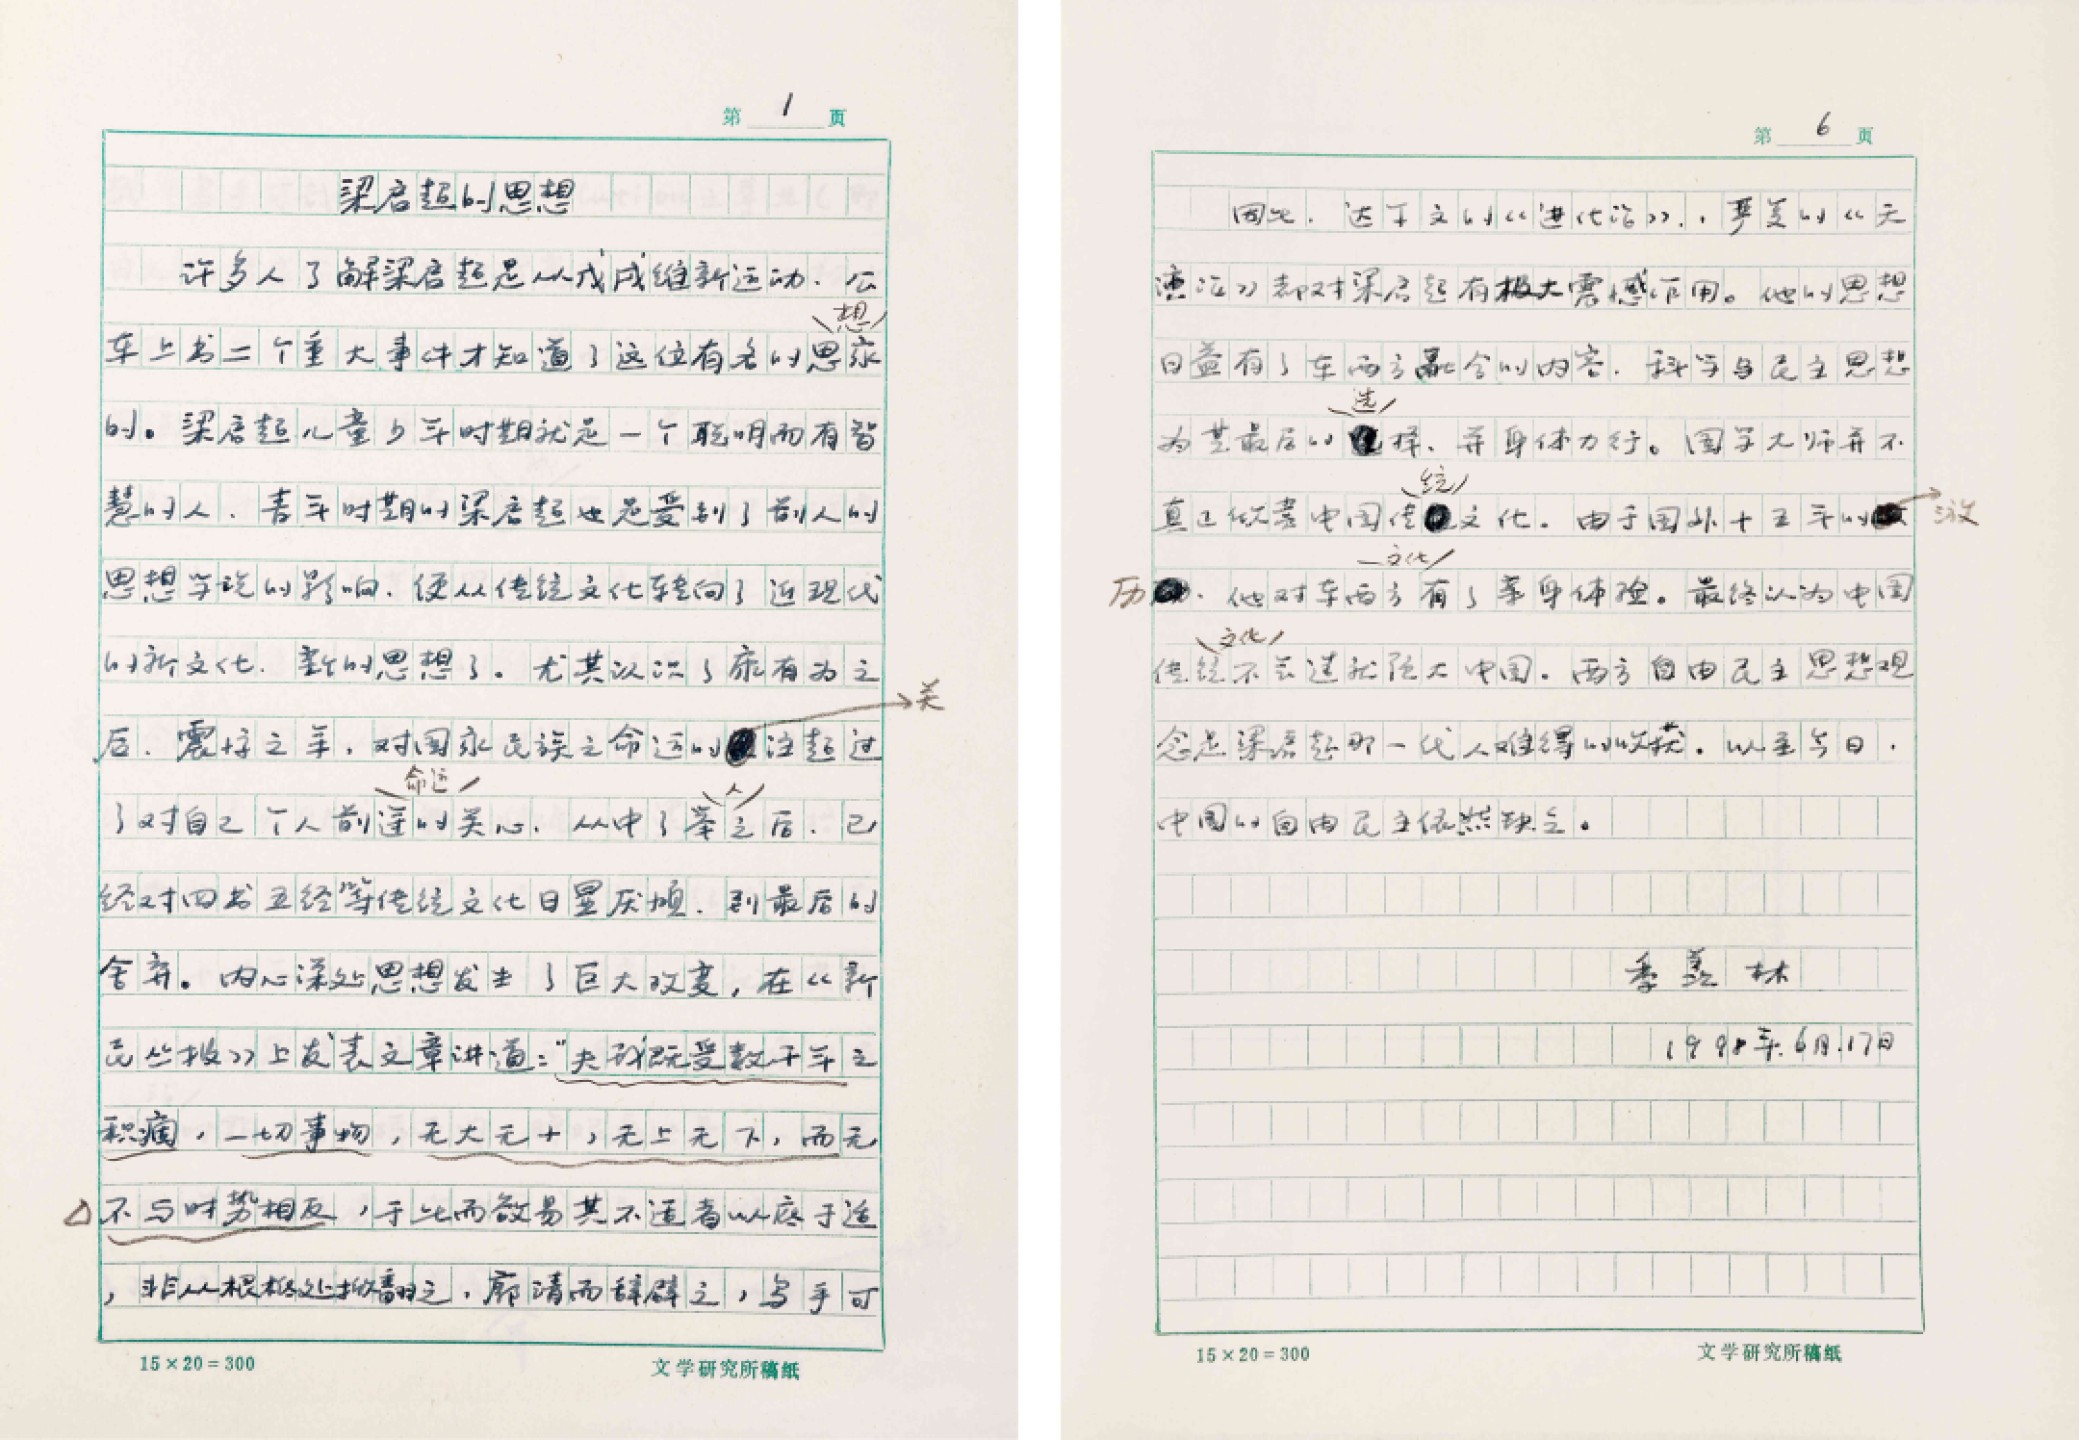 第 1 页
梁启超的思想
许多人了解梁启超是从戊戌维新运动.公
想
车上书二个重大事件才知道了这位有名的思家
的。梁启超儿童少年时期就是一个聪明而有智
慧的人.青年时期的梁启超也是受到了前人的
思想学说的影响.便从传统文化转向了近现代
的新文化.新的思想了。尤其认识了康有为之
关
后.震惊之半.对国家民族之命运的注超过
命运 人
了对自己个人前途的关心.从中了举之后.已
经对四书五经等传统文化日显厌烦.到最后的
舍弃。内心深处思想发生了巨大改变,在《新
民丛报》上发表文章讲道:"夫我既受数千年之
积痼,一切事物,无大无小,无上无下,而无
不与时势相反,于此而欲易其不适者以底于适
,非从根柢处掀翻之.廓清而辞辟之,乌乎可
15×20=300
文学研究所稿纸
第 6 页
因此.达尔文的《进化论》.,严复的《天
演论》都对梁启超有极大震撼作用。他的思想
日益有了东西方融合的内容.科学与民主思想
选
为其最后的择.并身体力行。国学大师并不
统
真正依靠中国传文化.由于国外十五年的
游
文化
历.他对东西方有了亲身体验。最终认为中国
文化
传统不会造就强大中国。西方自由民主思想观
念是梁启超那一代人难得的收获.以至今日.
中国的自由民主依然缺乏。
季羡林
1998年.6月.17日
15×20=300
文学研究所稿纸